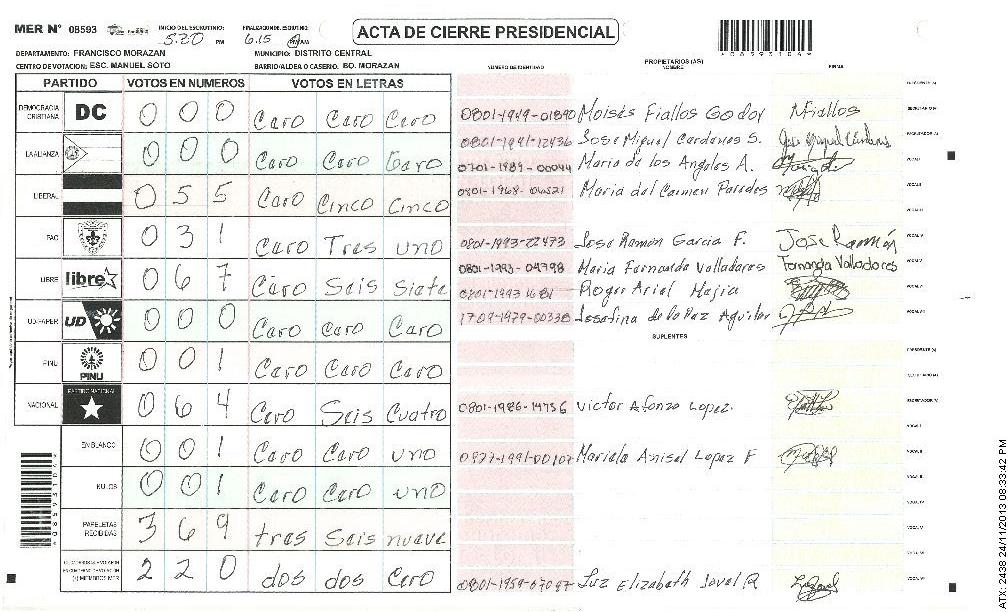 MER N° 08593 INICIO DEL ESCRUTINIO: 5:20 PM FINALIZACION DE ESCRUTINIO: 6:15 ACTA DE CIERRE PRESIDENCIAL
DEPARTAMENTO: FRANCISCO MORAZAN MUNICIPIO: DISTRITO CENTRAL
CENTRO DE VOTACION: ESC. MANUEL SOTO BARRIO/ALDEA O CASERIO: BO. MORAZAN
PARTIDO VOTOS EN NUMEROS VOTOS EN LETRAS
NUMERO DE IDENTIDAD PROPIETARIOS (AS) NOMBRE FIRMA
DEMOCRACIA CRISTIANA DC 0 0 0 Cero Cero Cero
LA ALIANZA 0 0 0 Cero Cero Cero
LIBERAL 0 5 5 Cero Cinco Cinco
PAC 0 3 1 Cero Tres uno
LIBRE libre 0 6 7 Cero Seis Siete
UD-FAPER UD 0 0 0 Cero Cero Cero
PINU PINU 0 0 1 Cero Cero Cero
NACIONAL PARTIDO NACIONAL 0 6 4 Cero Seis Cuatro
EN BLANCO 0 0 1 Cero Cero uno
NULOS 0 0 1 Cero Cero uno
PAPELETAS RECIBIDAS 3 6 9 tres Seis nueve
2 2 0 dos dos Cero
0801-1949-01890 Moisés Fiallos Godoy MFiallos
0801-1941-12436 Jose Miguel Cardenas S. Jose Miguel Cárdenas
0701-1989-00044 Maria de los Angeles A.
0801-1968-04321 Maria del Carmen Paredes
0801-1993-22473 Jose Ramón Garcia F. Jose Ramón
0801-1993-04798 Maria Fernanda Valladares Fernanda Valladares
Roger Ariel Mejia
1709-1979-00338 Josefina de la Paz Aguilar
SUPLENTES
0801-1986-14756 Victor Afonzo Lopez.
0827-1991-00107 Mariela Anisel Lopez F
Luz Elizabeth Joval R
ATX: 2438 24/11/2013 08:33:42 PM